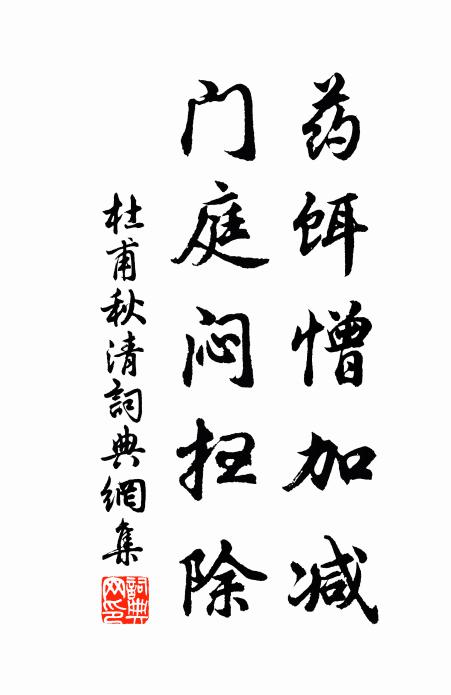 药饵憎加减
门庭闷扫除
杜甫秋清詞典網集
詞典网印